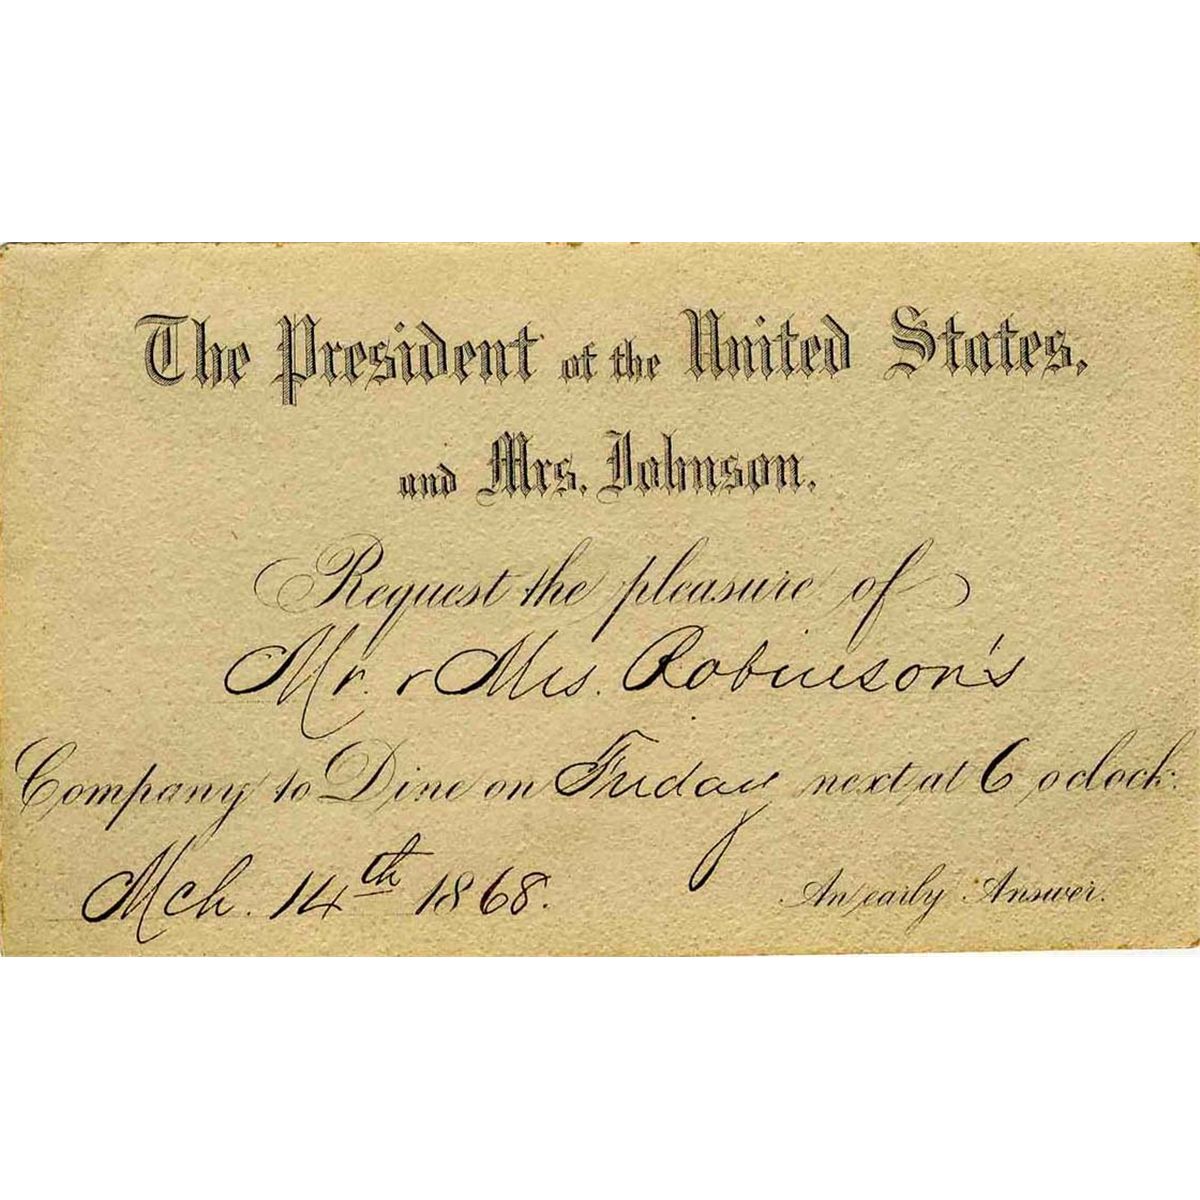 The President of the United States,
and Mrs. Johnson,
Request the pleasure of
Mr. & Mrs. Robinson's
Company to Dine on Friday next at 6 o'clock:
Mch. 14th 1868.
An early Answer.